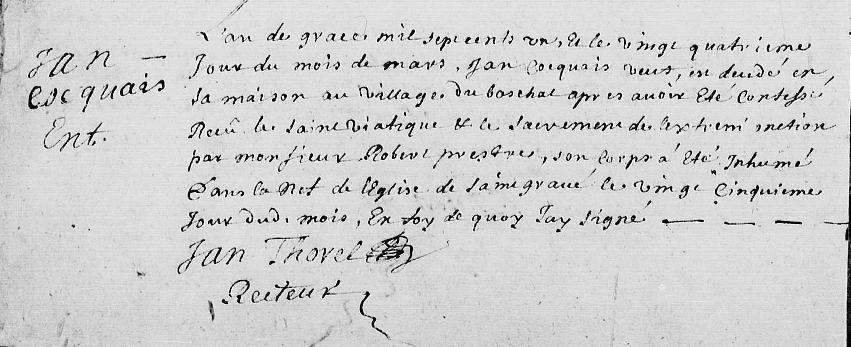 L'an de grace mil sept cents un, Et le vingt quatrieme
Jan
Cocquais
Ent.
Jour du mois de mars, Jan Cocquais veuf, en decedé en
Sa maison au village du boschat apres avoir Eté Confessé
Receû le saint viatique & le sacrement de l'extreme onction
par monsieur Robert prestre, son Corps á Eté Inhumé
Dans la Nef de l'Eglise de saint gravé le vingt Cinquieme
Jour dud. mois, En foy de quoy Jay signé
Jan Thorel
Recteur